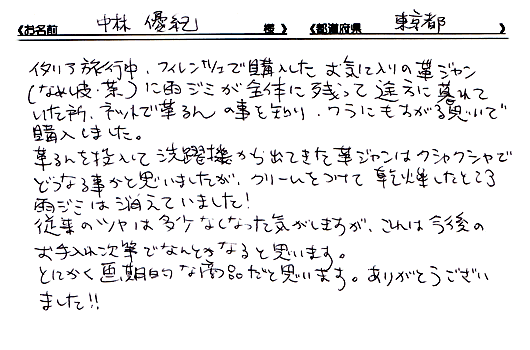 《お名前 中林 優紀 様》 《都道府県 東京都 》
イタリア旅行中、フィレンツェで購入した お気に入りの革ジャン
(なめし皮・茶)に雨ジミが全体に残って途方に暮れて
いた所、ネットで革るんの事を知り、ワラにもすがる思いで
購入しました。
革るんを投入して洗濯機から出てきた革ジャンはクシャクシャで
どうなる事かと思いましたが、クリームをつけて乾燥したところ
雨ジミは消えていました!
従来のツヤは多少なくなった気がしますが、これは今後の
お手入れ次第でなんとかなると思います。
とにかく画期的な商品だと思います。ありがとうござい
ました!!